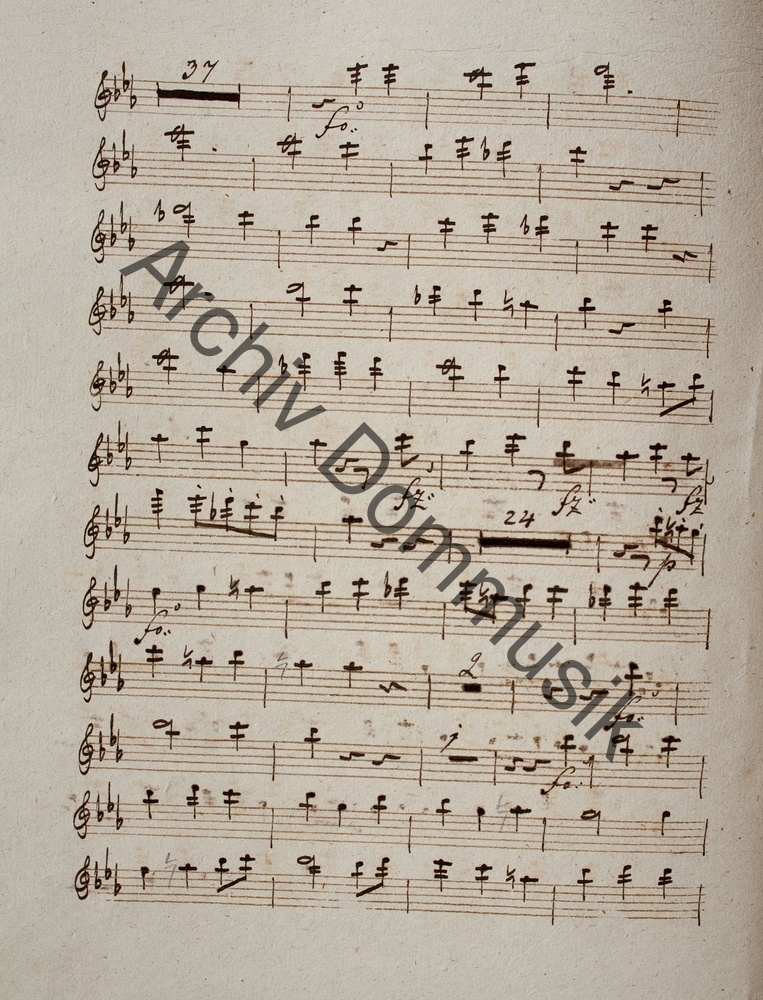 37
fo:
fz: fz: fz
24
p
fo:
2
fo:
1
fo:
Archiv Dommusik